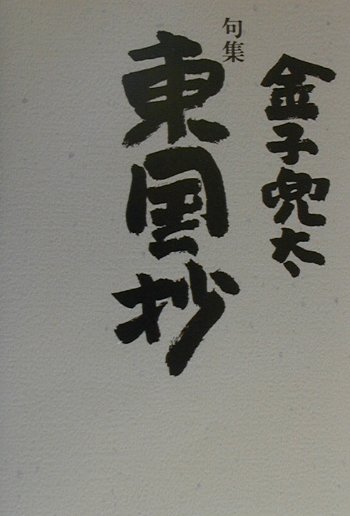 金子兜太
句集
東国抄